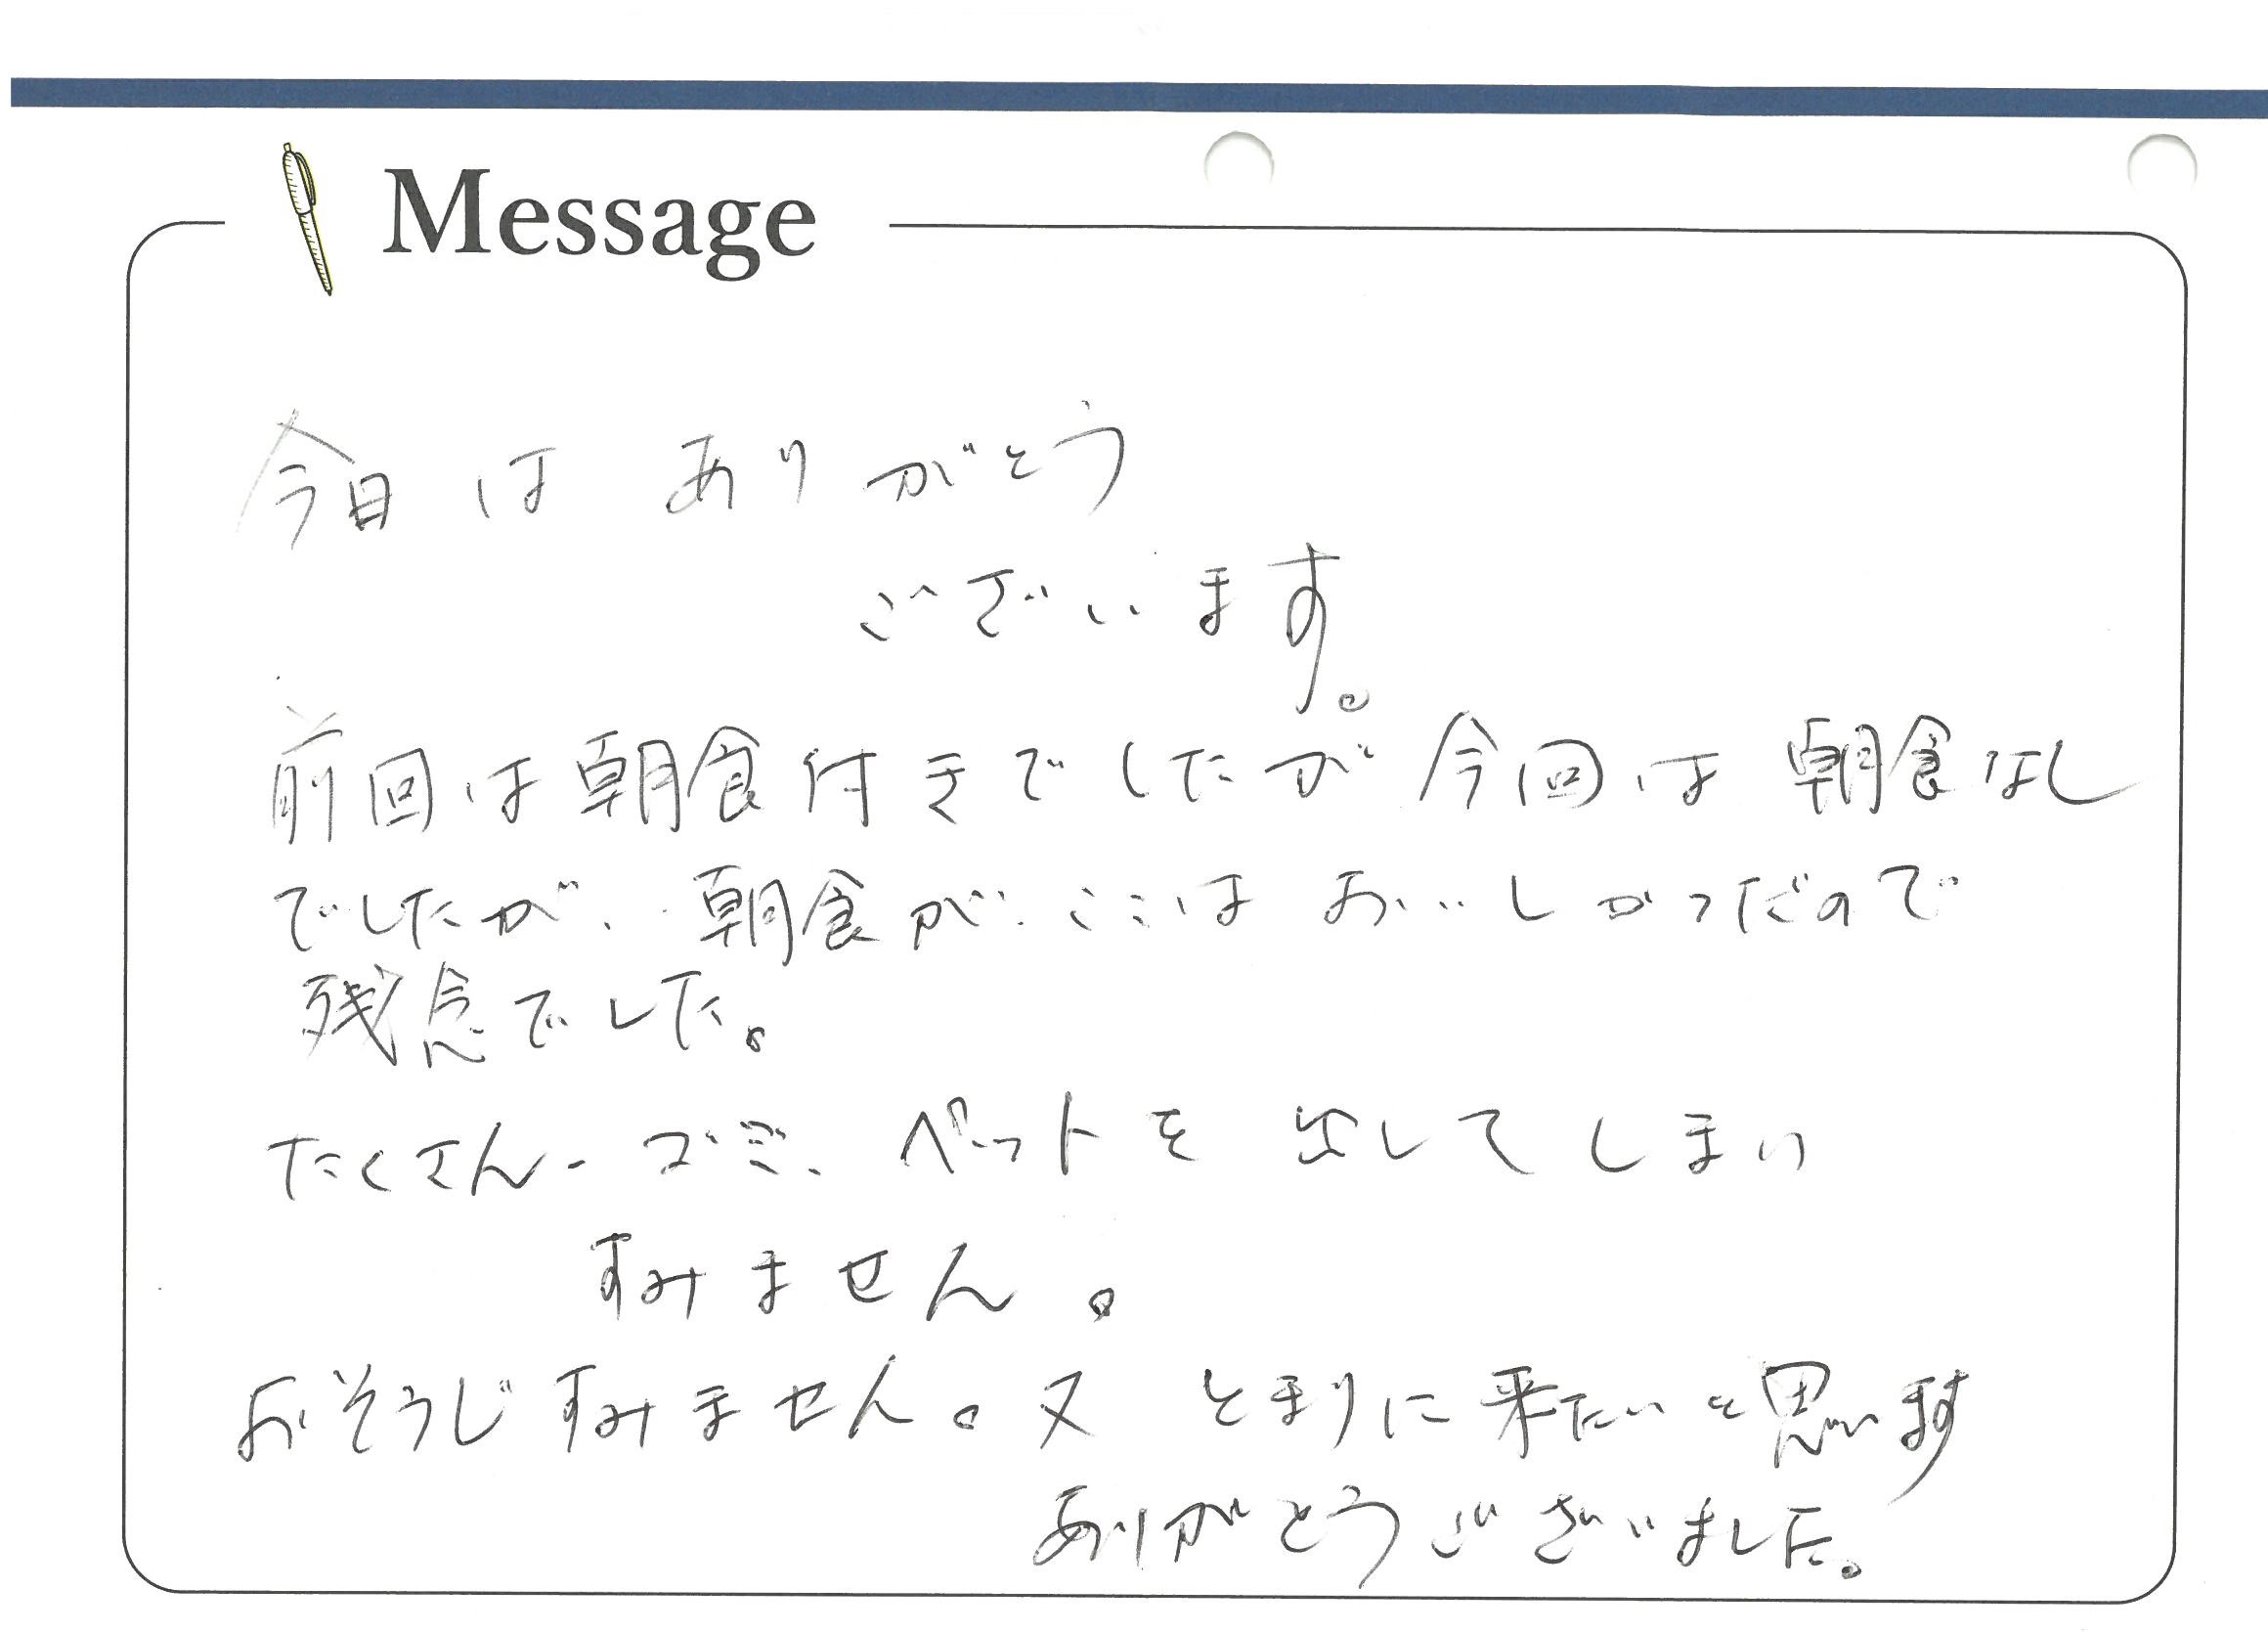 Message
今日は ありがとう
ございます。
前回は朝食付きでしたが 今回は 朝食なし
でしたが、朝食が ここは おいしかっだので
残念でした。
たくさん、ゴミ、ペットを 出してしまい
すみません。
おそうじすみません。又 とまりに来たいと思います
ありがとうございました。